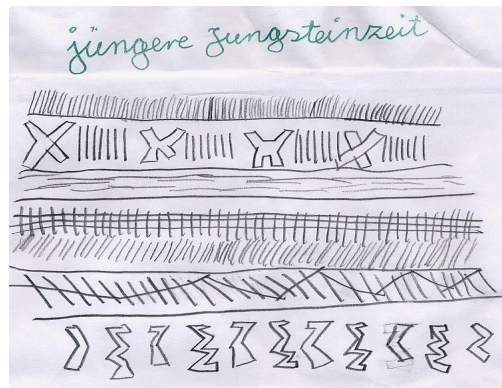 jüngere Jungsteinzeit